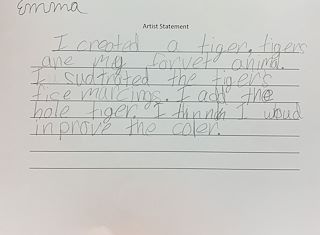 Emma
Artist Statement
I created a tiger. tigers
are my forvet anima.
I sudtmited the tigers
fise marcings. I add the
hole tiger. I thnnk I woud
inprove the coler.